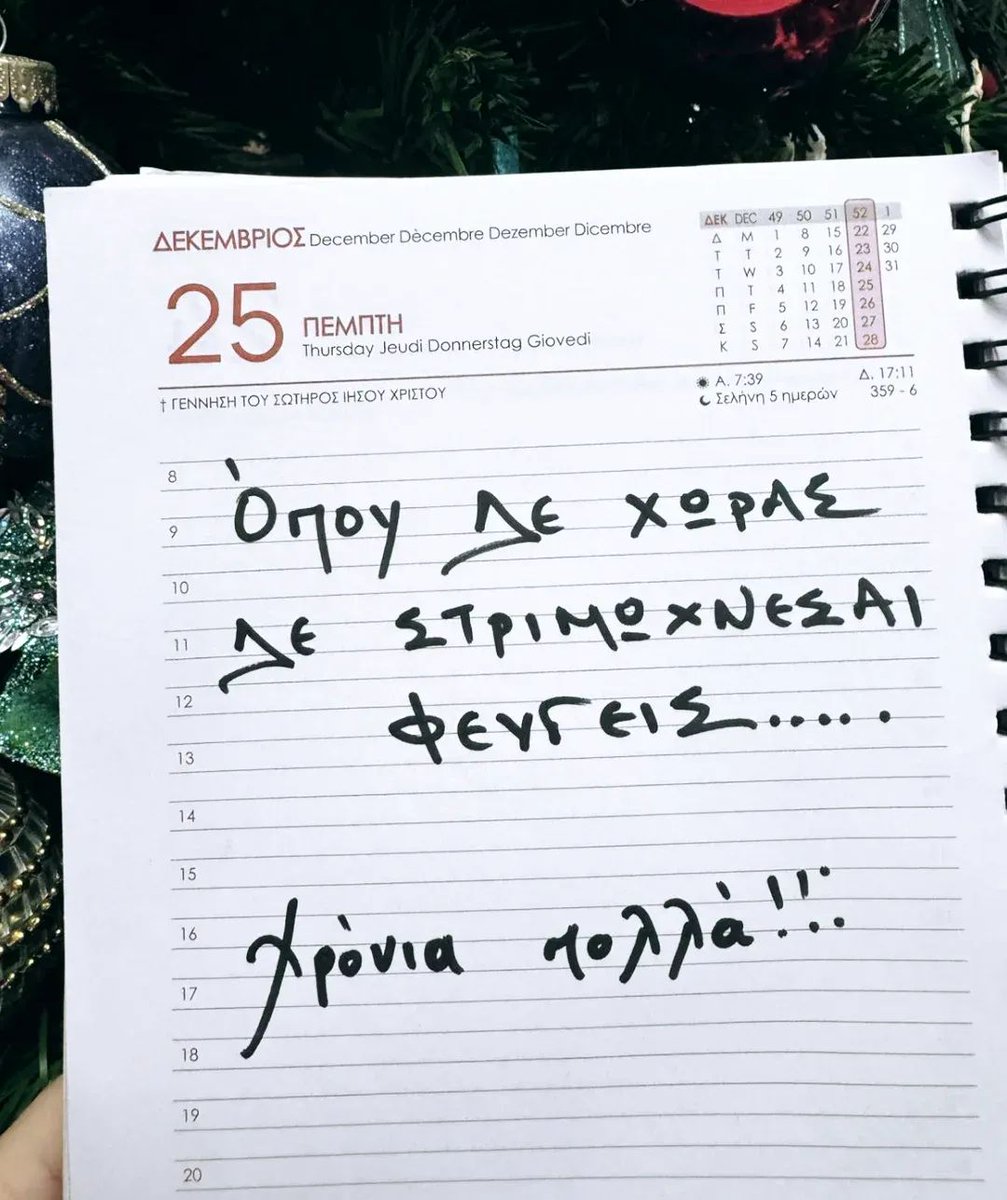 ΔΕΚΕΜΒΡΙΟΣ December Dècembre Dezember Dicembre
25 ΠΕΜΠΤΗ
Thursday Jeudi Donnerstag Giovedi
ΔΕΚ DEC 49 50 51 52 1
Δ M 1 8 15 22 29
Τ T 2 9 16 23 30
Τ W 3 10 17 24 31
Π T 4 11 18 25
Π F 5 12 19 26
Σ S 6 13 20 27
Κ S 7 14 21 28
† ΓΕΝΝΗΣΗ ΤΟΥ ΣΩΤΗΡΟΣ ΙΗΣΟΥ ΧΡΙΣΤΟΥ
Α. 7:39 Δ. 17:11
Σελήνη 5 ημερών 359 - 6
8
9 Όπου ΔΕ ΧΩΡΑΣ
10
11 ΔΕ ΣΤΡΙΜΩΧΝΕΣΑΙ
12
13 ΦΕΥΓΕΙΣ.....
14
15
16 Χρόνια πολλά!!!
17
18
19
20